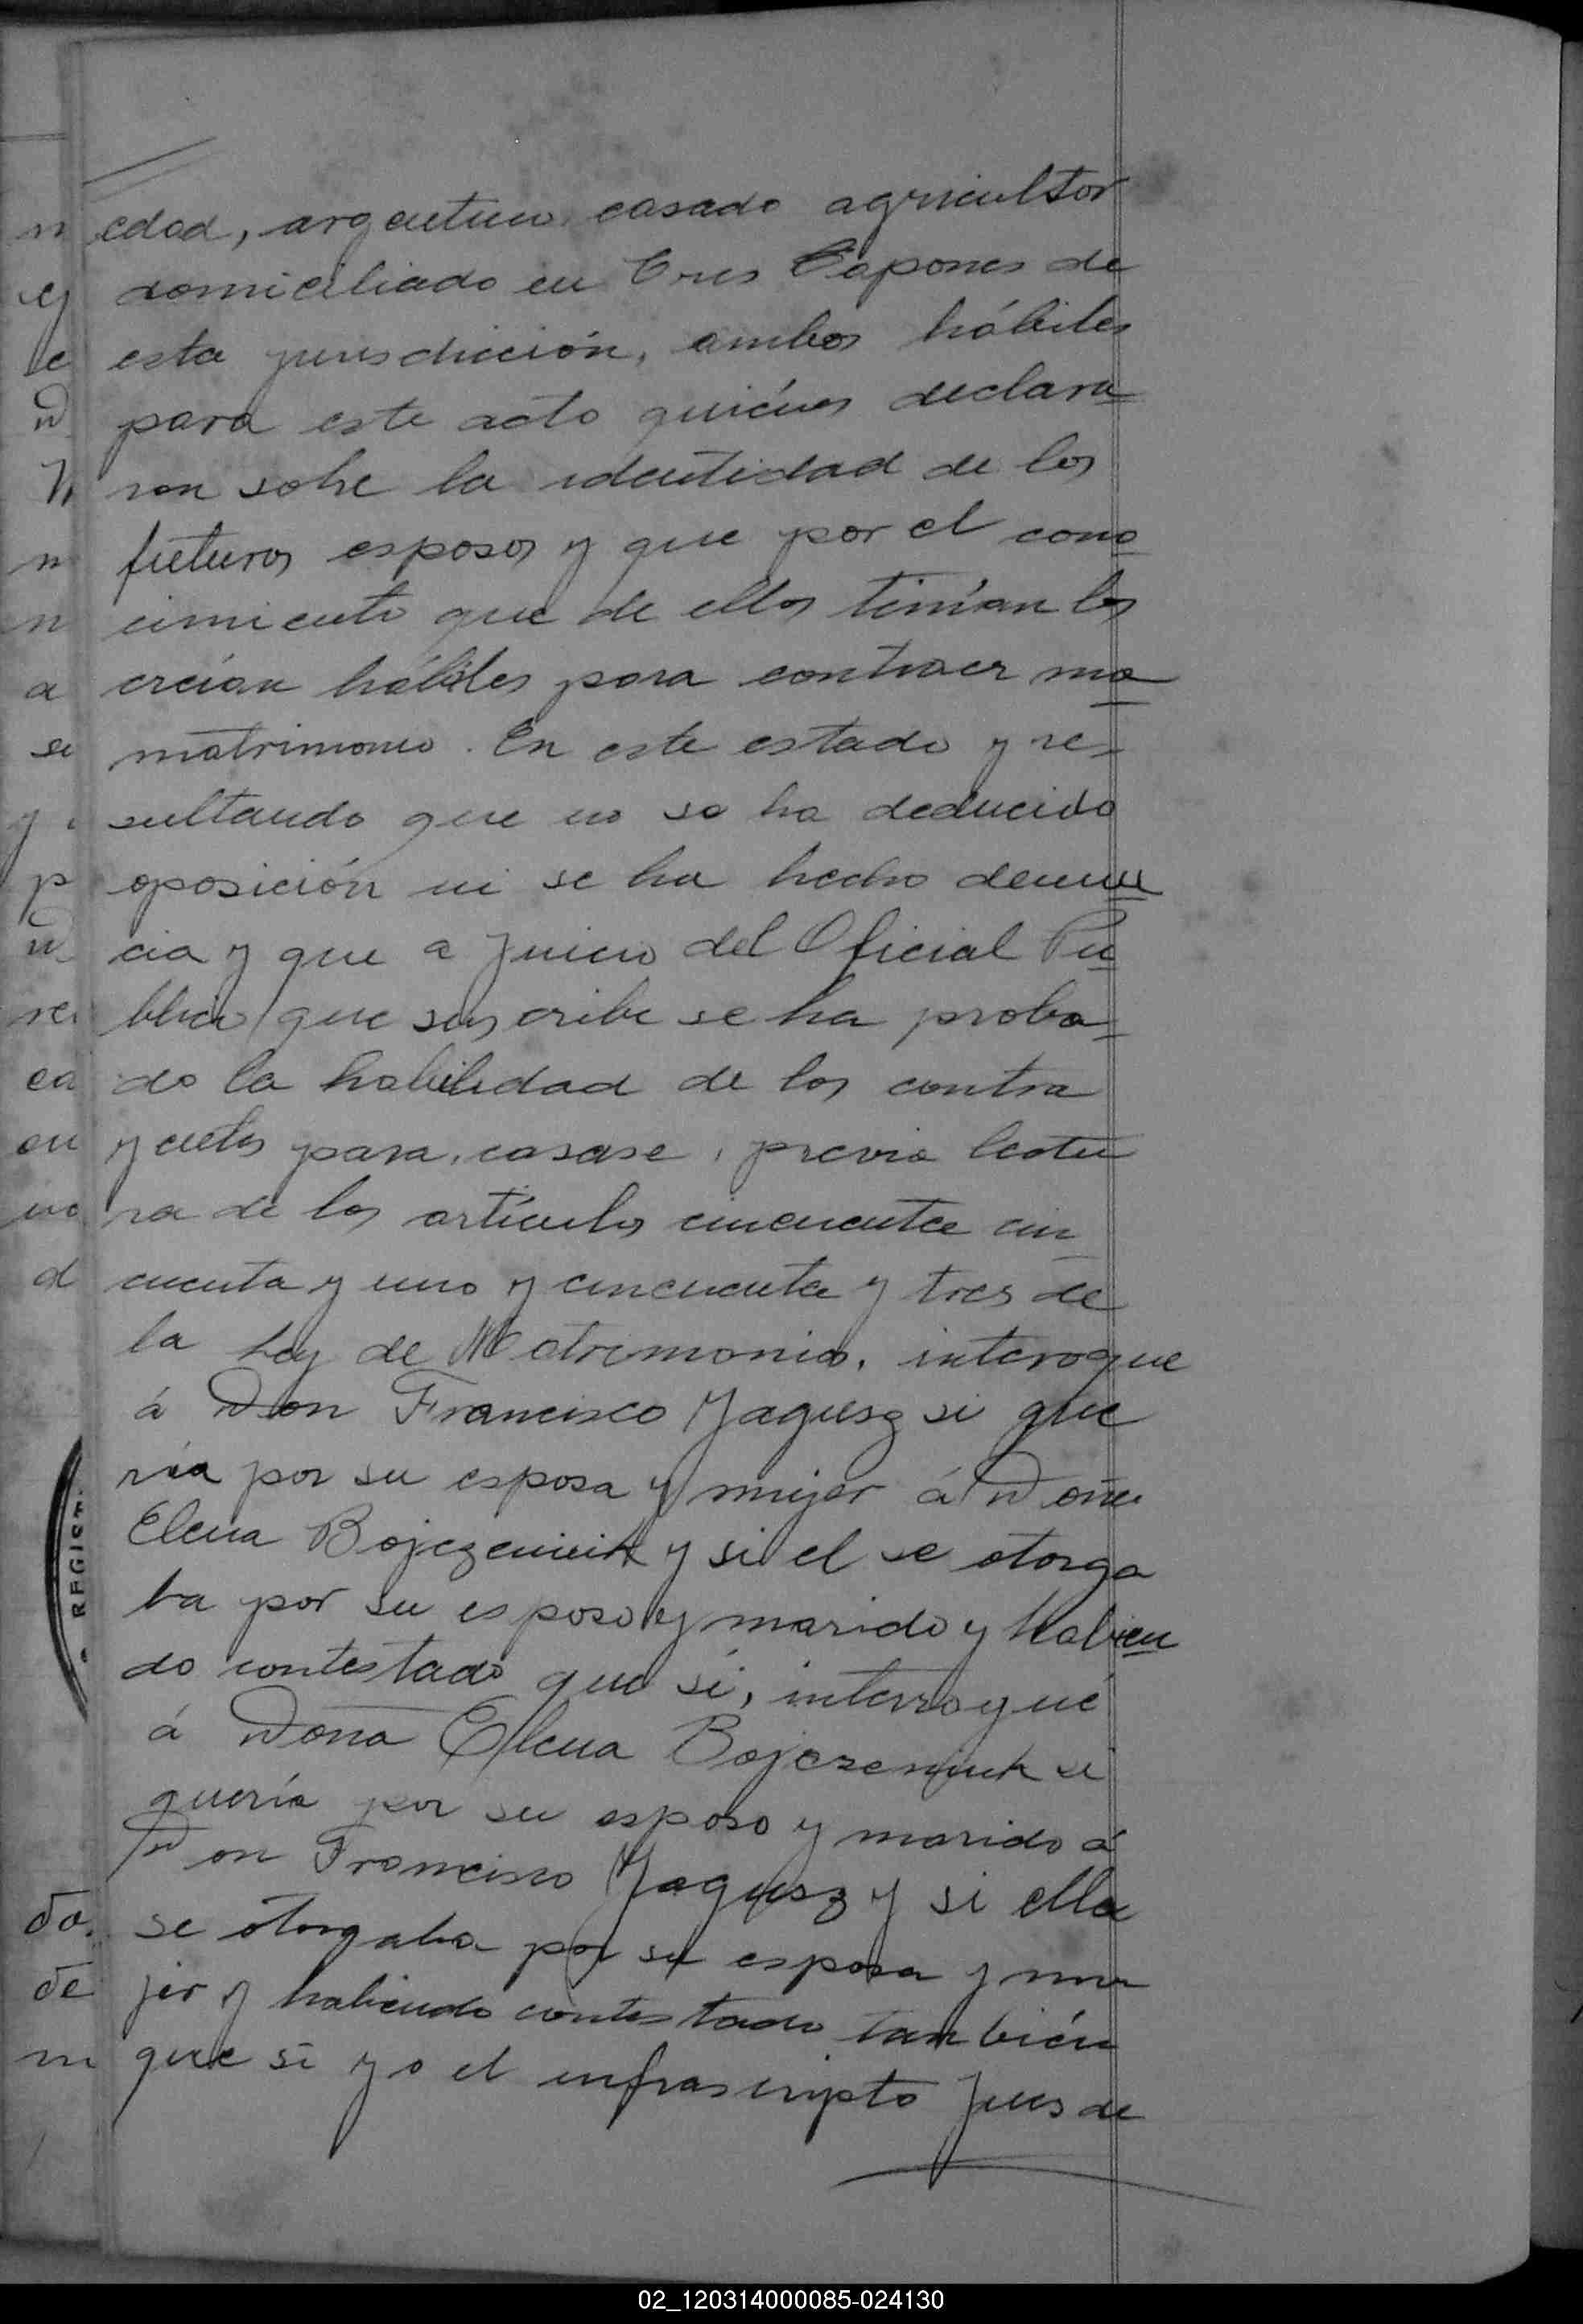 edad, argentino, casado agricultor
domiciliado en Tres Capones de
esta jurisdicción, ambos hábiles
para este acto quiénes declara
ron sobre la identidad de los
futuros esposos y que por el cono
cimiento que de ellos tenían los
creían hábiles para contraer ma
matrimonio. En este estado y re-
sultando que no se ha deducido
oposición ni se ha hecho denun
cia y que a juicio del Oficial Pú
blico que suscribe se ha proba
do la habilidad de los contra
yentes para casase, previa lectu
ra de los artículos cincuenta cin
cuenta y uno y cincuenta y tres de
la Ley de Matrimonio, interogue
á Don Francisco Yagusz si que
ría por su esposa y mujer á Doña
Elena Bojezeniuk y si el se otorga
ba por su esposo y marido y habien
do contestado que si, interrogué
á Doña Elena Bojczeniuk si
quería por su esposo y marido á
Don Francisco Yagusz y si ella
se otorgaba por su esposa y mu
jer y habiendo contestado también
que si yo el infrascripto Jues de
REGIST
n
y
le
D
n
n
a
se
p
rei
ca
en
no
d
do.
de
m
02_120314000085-024130